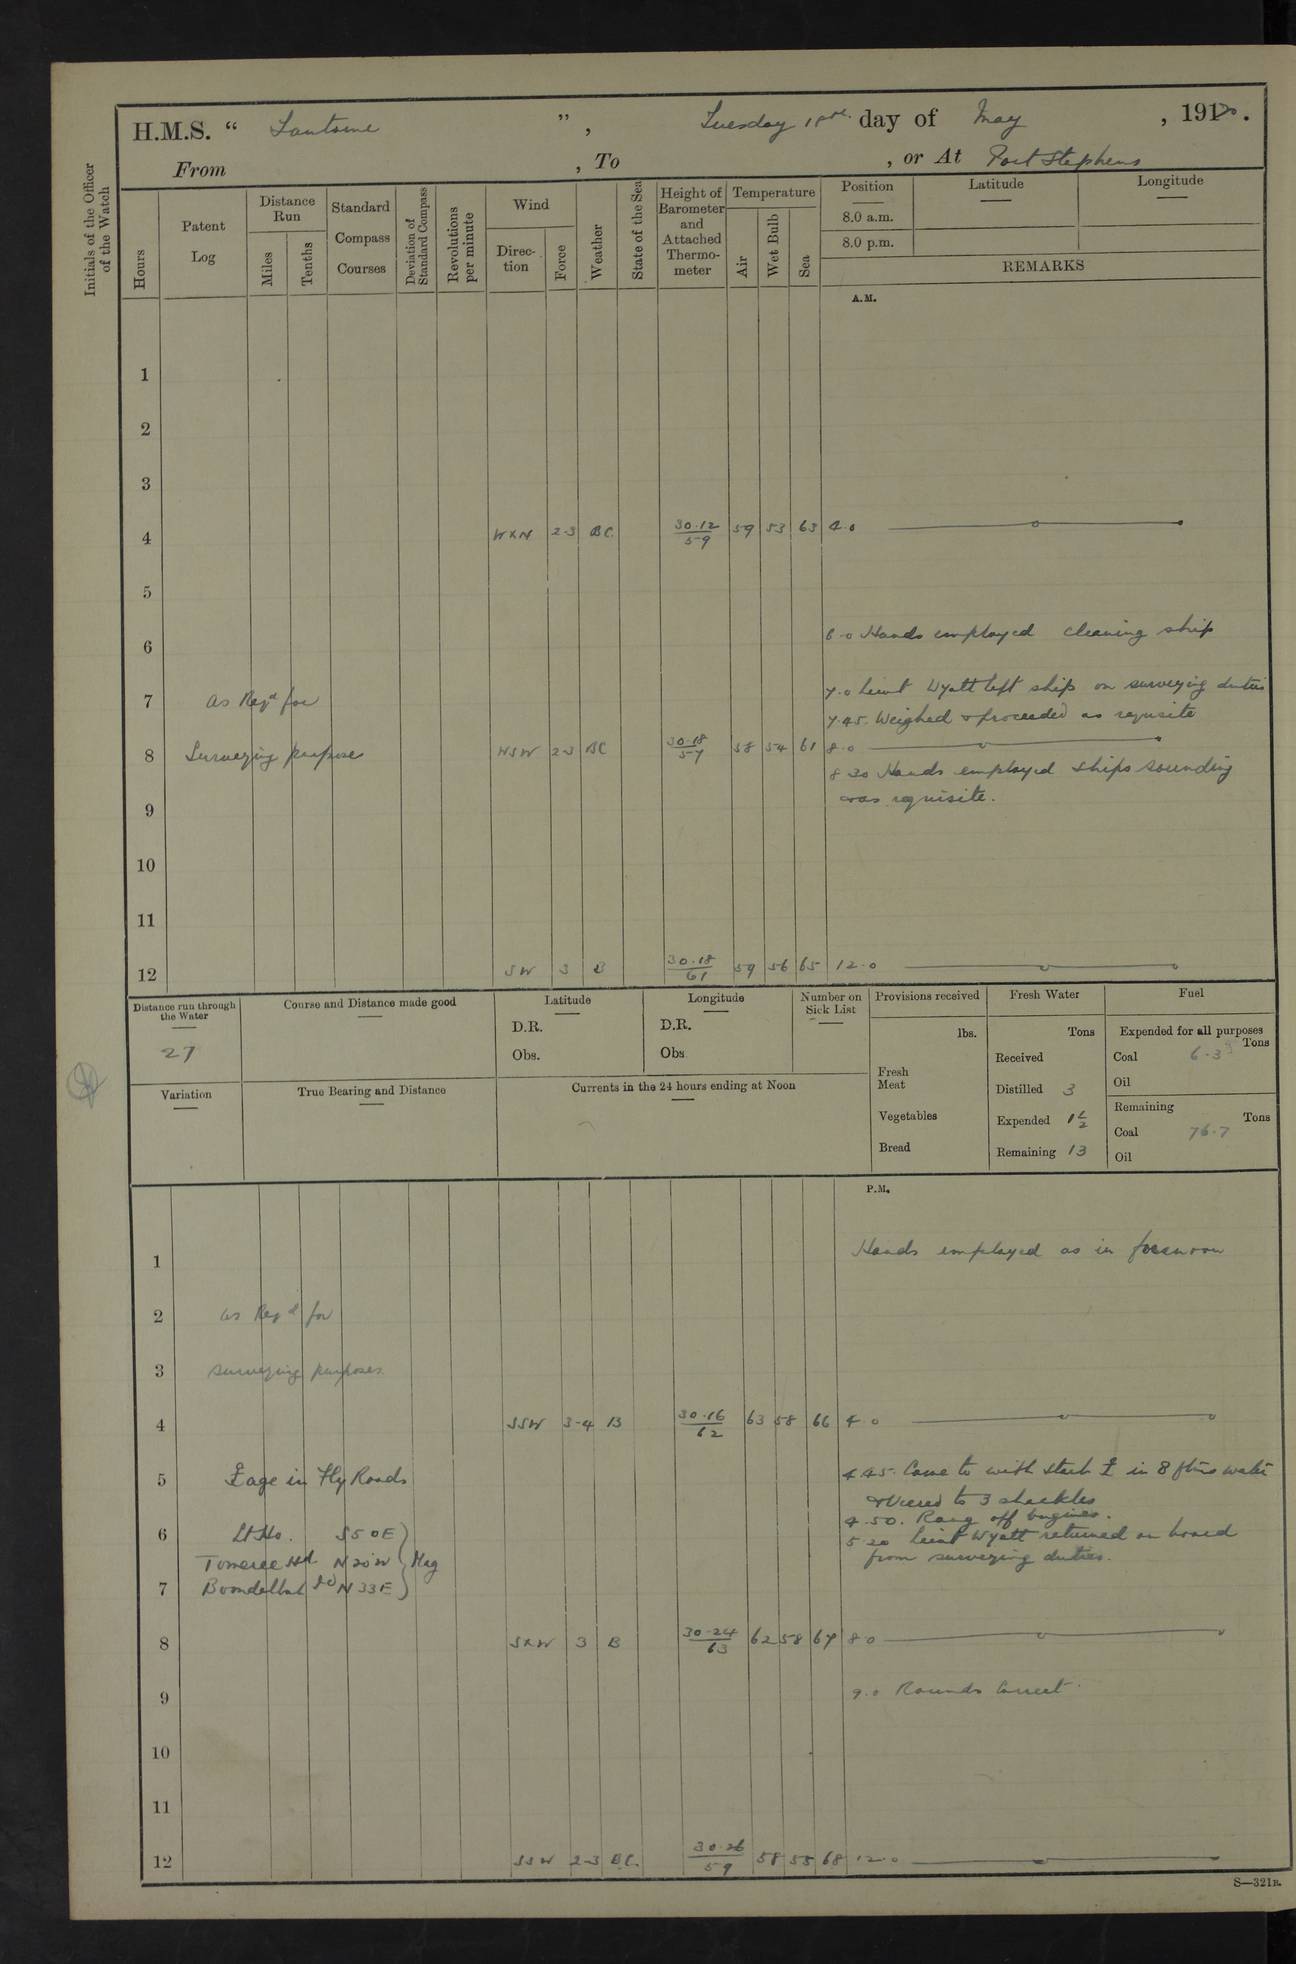 H.M.S. “ Fantome ”, Tuesday 18th day of May, 1920.
From , To , or At Port Stephens
Initials of the Officer of the Watch
Hours
Patent Log
Distance Run
Miles
Tenths
Standard Compass Courses
Deviation of Standard Compass
Revolutions per minute
Wind
Direction
Force
Weather
State of the Sea
Height of Barometer and Attached Thermometer
Temperature
Air
Wet Bulb
Sea
Position
8.0 a.m.
8.0 p.m.
Latitude
Longitude
REMARKS
A.M.
1
2
3
4 WXN 2-3 BC 30.12/59 59 53 63 4.0
5
6 6.0 Hands employed cleaning ship
7 as Reqd for 7.0 Lieut Wyatt left ship on surveying duties
7.45. Weighed & proceeded as requisite
8 Surveying purposes WSW 2-3 BC 30.18/57 58 54 61 8.0
8 30 Hands employed ships sounding
as requisite.
9
10
11
12 SW 3 B 30.18/61 59 56 65 12.0
Distance run through the Water
27
Course and Distance made good
Latitude
D.R.
Obs.
Longitude
D.R.
Obs.
Number on Sick List
Provisions received
lbs.
Fresh Meat
Vegetables
Bread
Fresh Water
Tons
Received
Distilled 3
Expended 1½
Remaining 13
Fuel
Expended for all purposes
Tons
Coal 6.3
Oil
Remaining
Tons
Coal 76.7
Oil
Variation
True Bearing and Distance
Currents in the 24 hours ending at Noon
P.M.
1 Hands employed as in forenoon
2 as Reqd for
3 surveying purposes.
4 SSW 3-4 B 30.16/62 63 58 66 4.0
5 age in Fly Roads 4.45. Came to with Starb in 8 fms water
& veered to 3 shackles
4.50. Rang off Engines.
6 Lt Ho. S50E 5 20 Lieut Wyatt returned on board
Tomeree Hd. N20W Mag from surveying duties.
7 Boondelbah Id N33E
8 SXW 3 B 30.24/63 62 58 67 8.0
9 9.0 Rounds Correct.
10
11
12 SSW 2-3 BC. 30.26/59 58 55 68 12.0
S—321B.